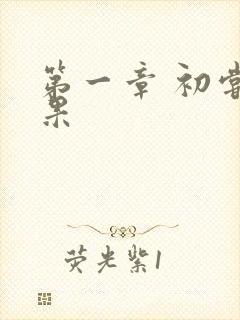 第一章 初尝
果
荧光紫1